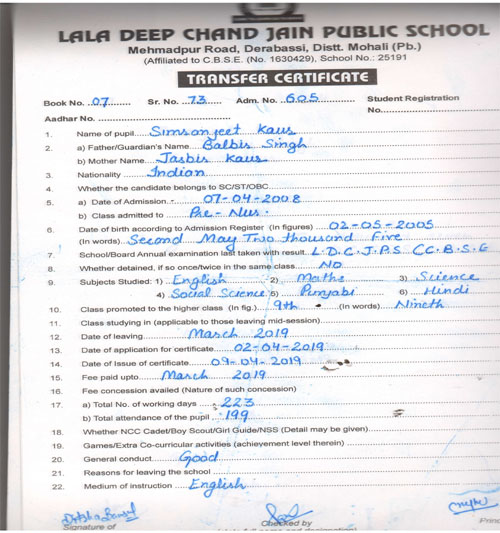 LALA DEEP CHAND JAIN PUBLIC SCHOOL
Mehmadpur Road, Derabassi, Distt. Mohali (Pb.)
(Affiliated to C.B.S.E. (No. 1630429), School No.: 25191
TRANSFER CERTIFICATE
Book No. 07 Sr. No. 73 Adm. No. 605 Student Registration
Aadhar No. No.
1. Name of pupil Simranjeet Kaur
2. a) Father/Guardian's Name Balbir Singh
b) Mother Name Jasbir Kaur
3. Nationality Indian
4. Whether the candidate belongs to SC/ST/OBC
5. a) Date of Admission 07-04-2008
b) Class admitted to Pre-Nur.
6. Date of birth according to Admission Register (In figures) 02-05-2005
(In words) Second May Two thousand Five
7. School/Board Annual examination last taken with result L.D.C.J.P.S CC.B.S.E
8. Whether detained, if so once/twice in the same class NO
9. Subjects Studied: 1) English 2) Maths 3) Science
4) Social Science 5) Punjabi 6) Hindi
10. Class promoted to the higher class (In fig.) 9th (In words) Nineth
11. Class studying in (applicable to those leaving mid-session)
12. Date of leaving March 2019
13. Date of application for certificate 02-04-2019
14. Date of Issue of certificate 09-04-2019
15. Fee paid upto March 2019
16. Fee concession availed (Nature of such concession)
17. a) Total No. of working days 223
b) Total attendance of the pupil 199
18. Whether NCC Cadet/Boy Scout/Girl Guide/NSS (Detail may be given)
19. Games/Extra Co-curricular activities (achievement level therein)
20. General conduct Good
21. Reasons for leaving the school
22. Medium of instruction English
Signature of Checked by Princ